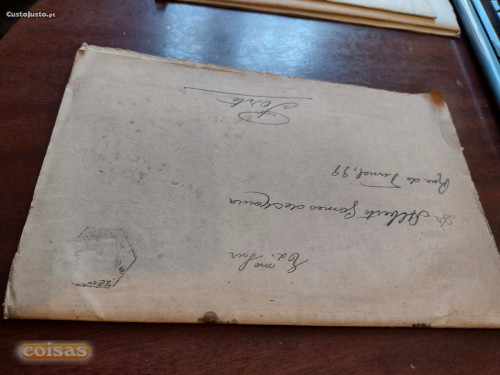 CustoJusto.pt
Ex.mo Snr
Dr Alberto Gomes de
Rua do Tunel, 99
Porto
coisas